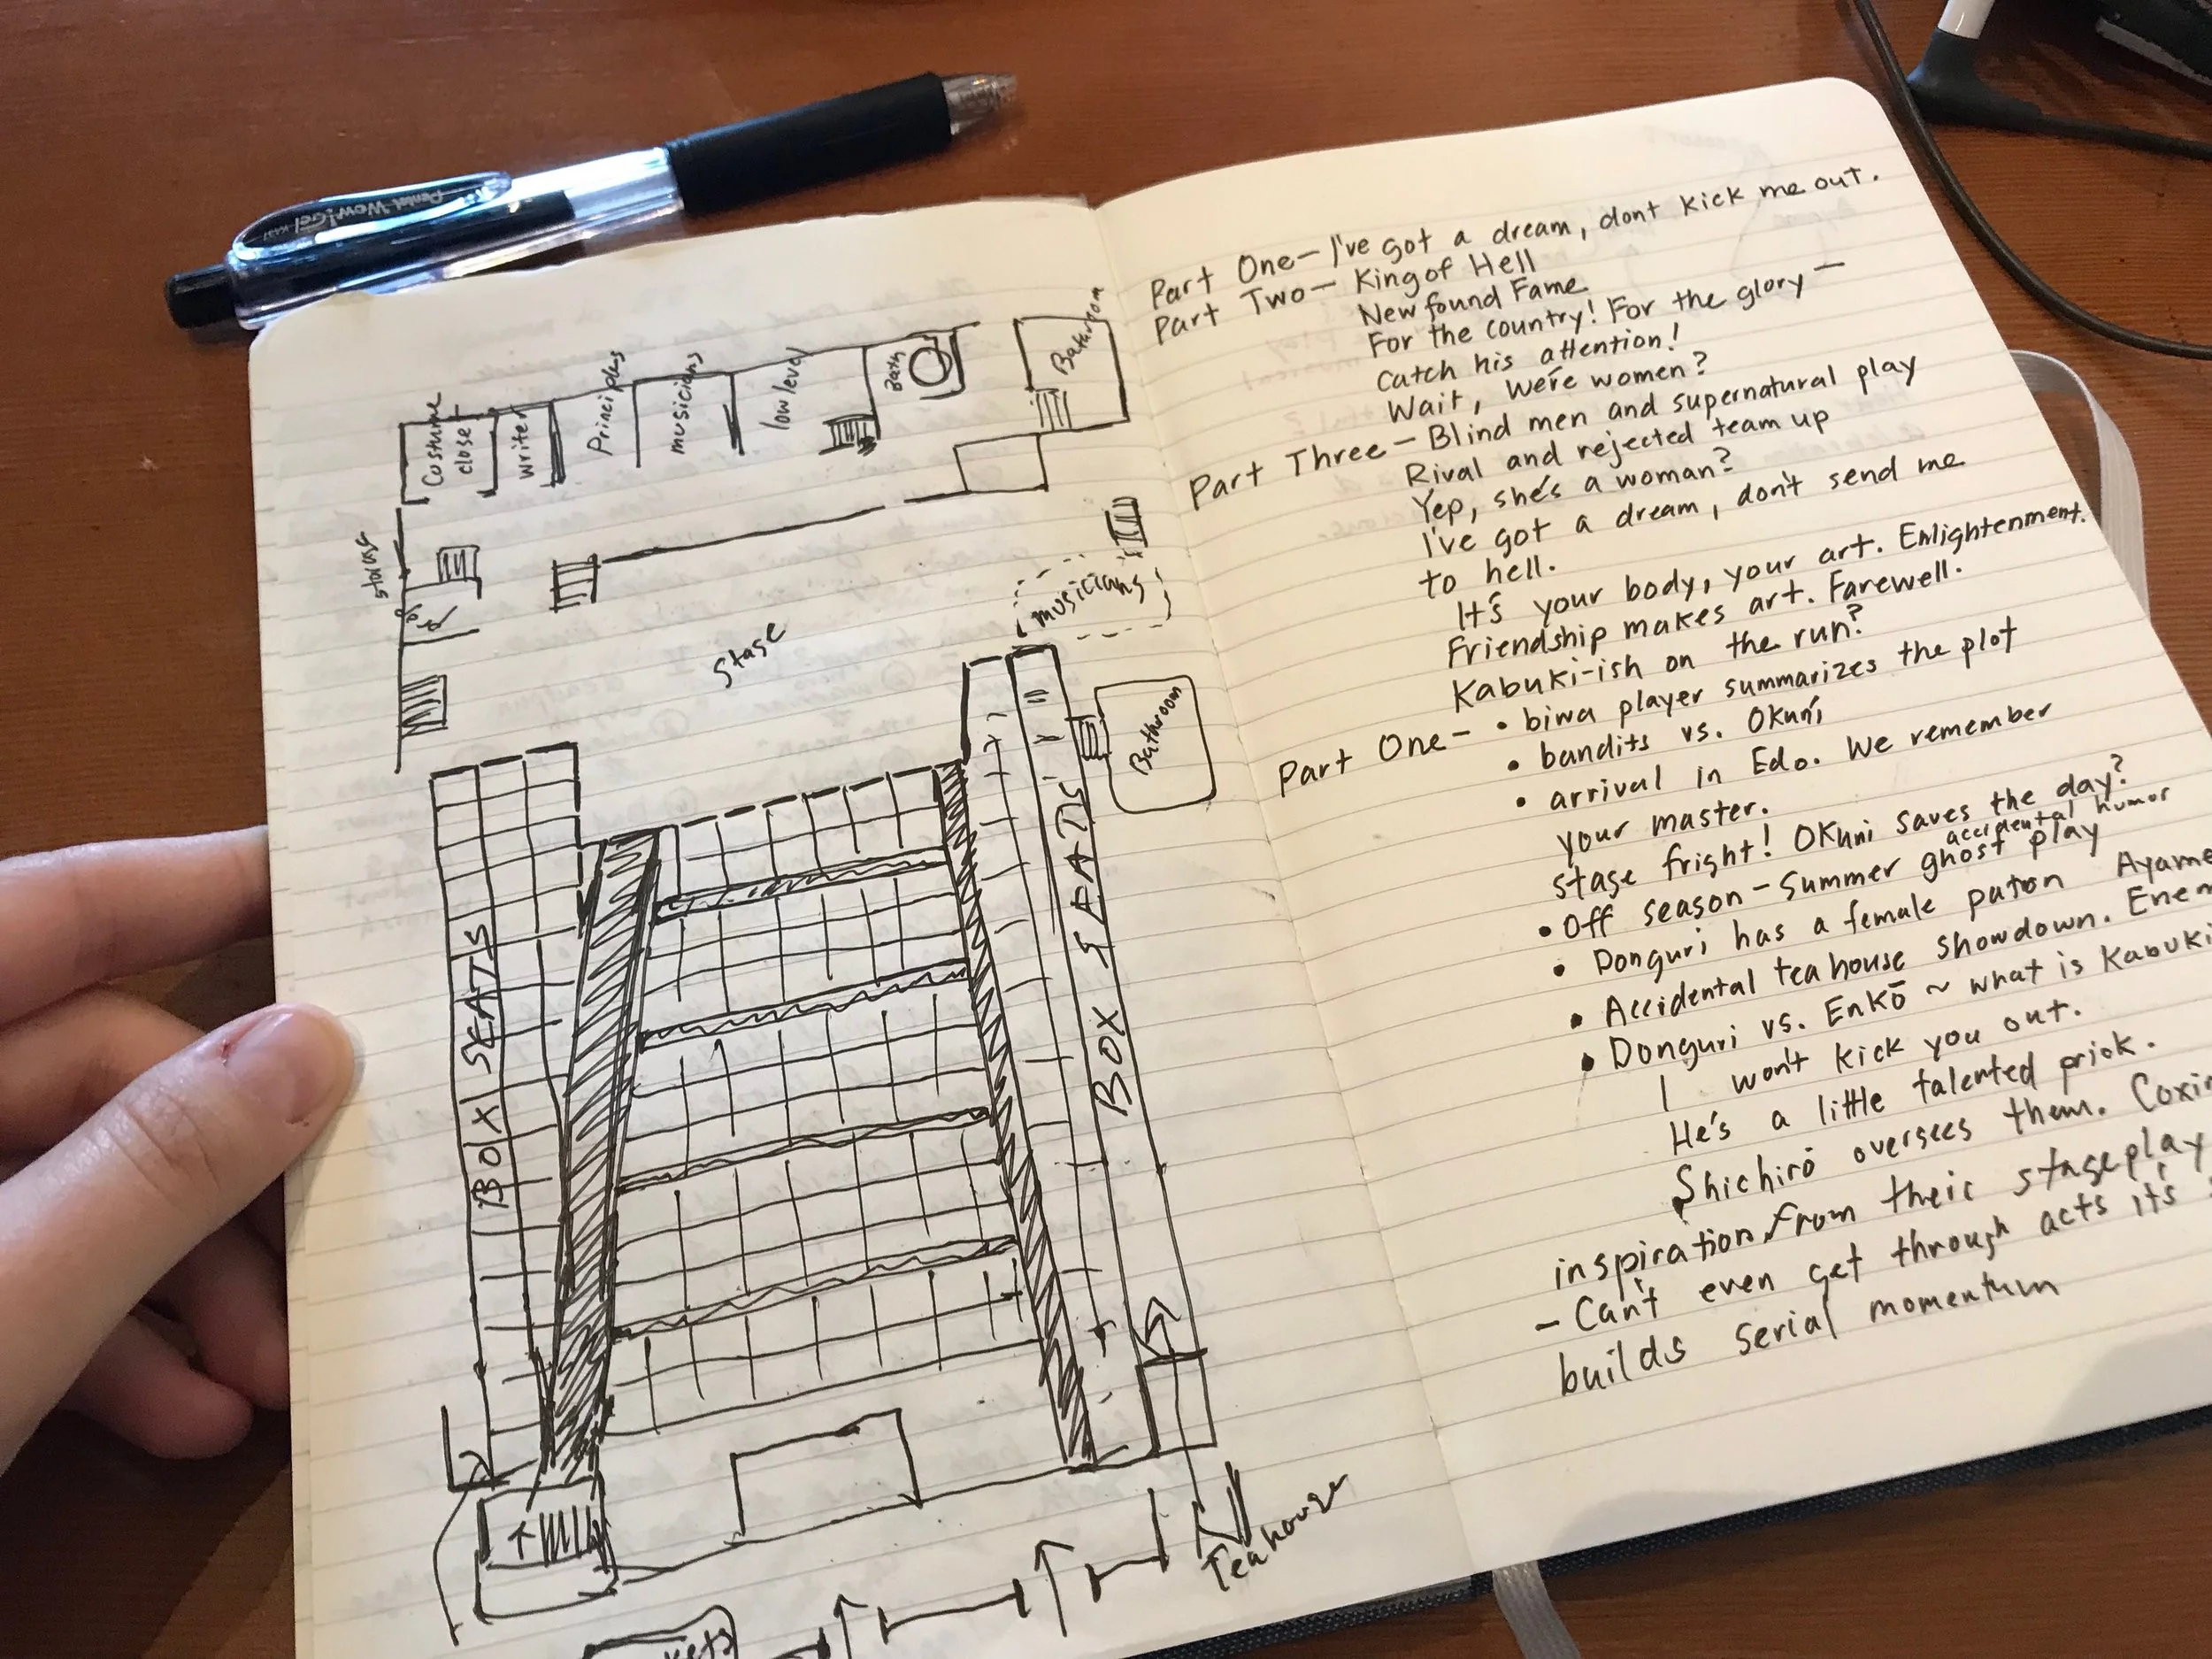 Pentel Wow! Gel
Costume
closet
writer
Principles
musicians
low level
Bath
Bathroom
storage
stage
musicians
Bathroom
BOX SEATS
BOX SEATS
Teahouse
Part One — I've got a dream, dont kick me out.
Part Two — King of Hell
New found Fame
For the country! For the glory —
Catch his attention!
Wait, we're women?
Part Three — Blind men and supernatural play
Rival and rejected team up
Yep, she's a woman?
I've got a dream, don't send me
to hell.
It's your body, your art. Enlightenment.
Friendship makes art. Farewell.
Kabuki-ish on the run?
Part One — • biwa player summarizes the plot
• bandits vs. Okuni
• arrival in Edo. We remember
your master.
stage fright! Okuni saves the day?
accidental humor
• Off season — Summer ghost play
• Donguri has a female patron Ayame
• Accidental teahouse showdown. Enem
• Donguri vs. Enkō ~ what is Kabuki
I won't kick you out.
He's a little talented prick.
Shichirō oversees them. Coxin
inspiration from their stageplay
- Can't even get through acts it's
builds serial momentum